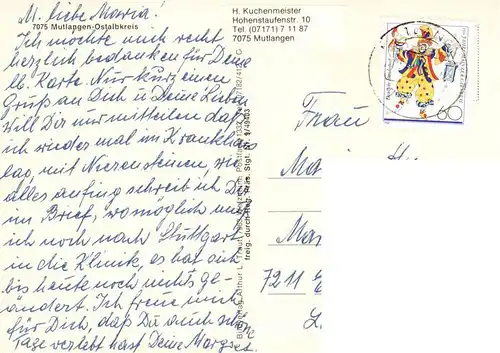 7075 Mutlangen-Ostalbkreis
H. Kuchenmeister
Hohenstaufenstr. 10
Tel. (07171) 7 11 87
7075 Mutlangen
M. liebe Maria!
Ich möchte mich recht
herzlich bedanken für Deine
lb. Karte. Nur kurz einen
Gruß an Dich u Deine Lieben
Will Dir nur mitteilen daß
ich wieder mal im Krankenhaus
lag, mit Nierensteinen, wie
alles anfing schreib ich Dir
im Brief, womöglich muß
ich noch nach Stuttgart
in die Klinik, es hat sich
bis heute noch nichts ge-
ändert. Ich freue mich
für Dich, daß Du auch schöne
Tage verlebt hast Deine Margret
freig. durch Reg. Präs. Stgt. Nr.
60
Frau
7211